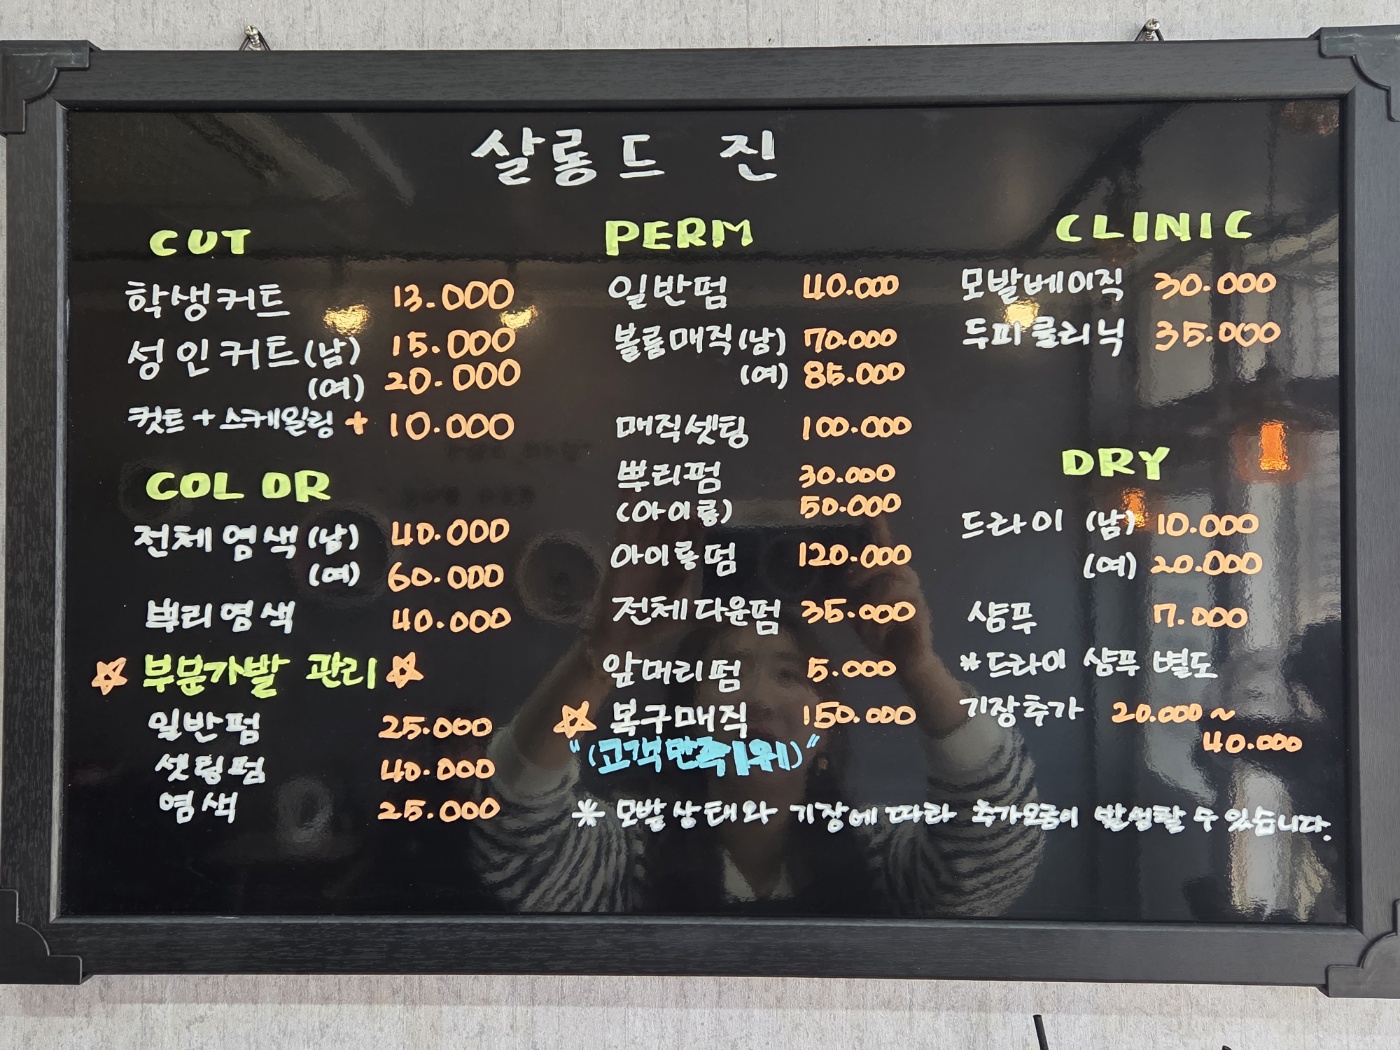 살롱드 진
CUT
학생커트 13.000
성인커트(남) 15.000
(여) 20.000
컷트+스케일링 + 10.000
COLOR
전체염색(남) 40.000
(여) 60.000
뿌리염색 40.000
부문가발 관리
일반펌 25.000
셋팅펌 40.000
염색 25.000
PERM
일반펌 40.000
볼륨매직(남) 70.000
(여) 85.000
매직셋팅 100.000
뿌리펌 30.000
(아이롱) 50.000
아이롱펌 120.000
전체다운펌 35.000
앞머리펌 5.000
복구매직 150.000
"(고객만족1위)"
CLINIC
모발베이직 30.000
두피클리닉 35.000
DRY
드라이 (남) 10.000
(여) 20.000
샴푸 7.000
*드라이 샴푸 별도
기장추가 20.000~
40.000
* 모발상태와 기장에따라 추가요금이 발생할 수 있습니다.